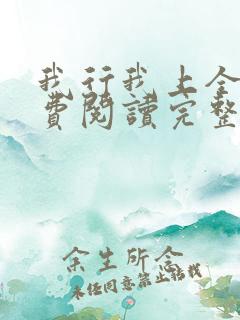 我行我上全
費閱讀完整
余生所念
未经同意禁止转载